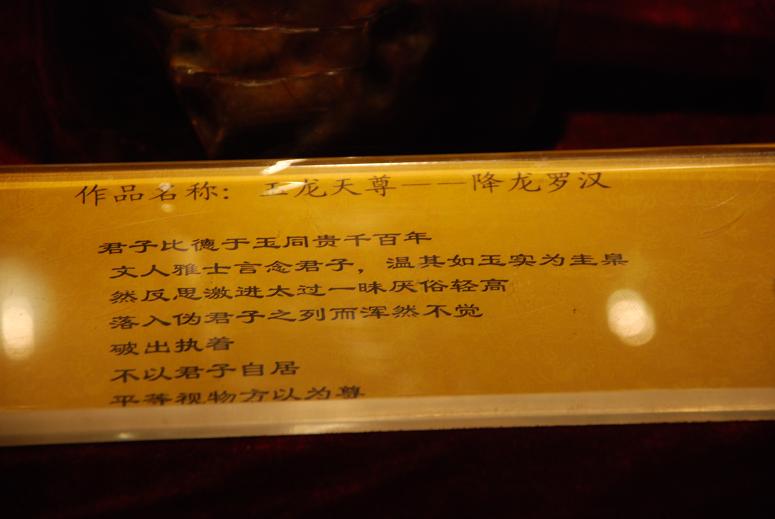 作品名称：玉龙天尊——降龙罗汉
君子比德于玉同贵千百年
文人雅士言念君子，温其如玉实为圭臬
然反思激进太过一昧厌俗轻高
落入伪君子之列而浑然不觉
破出执着
不以君子自居
平等视物方以为尊